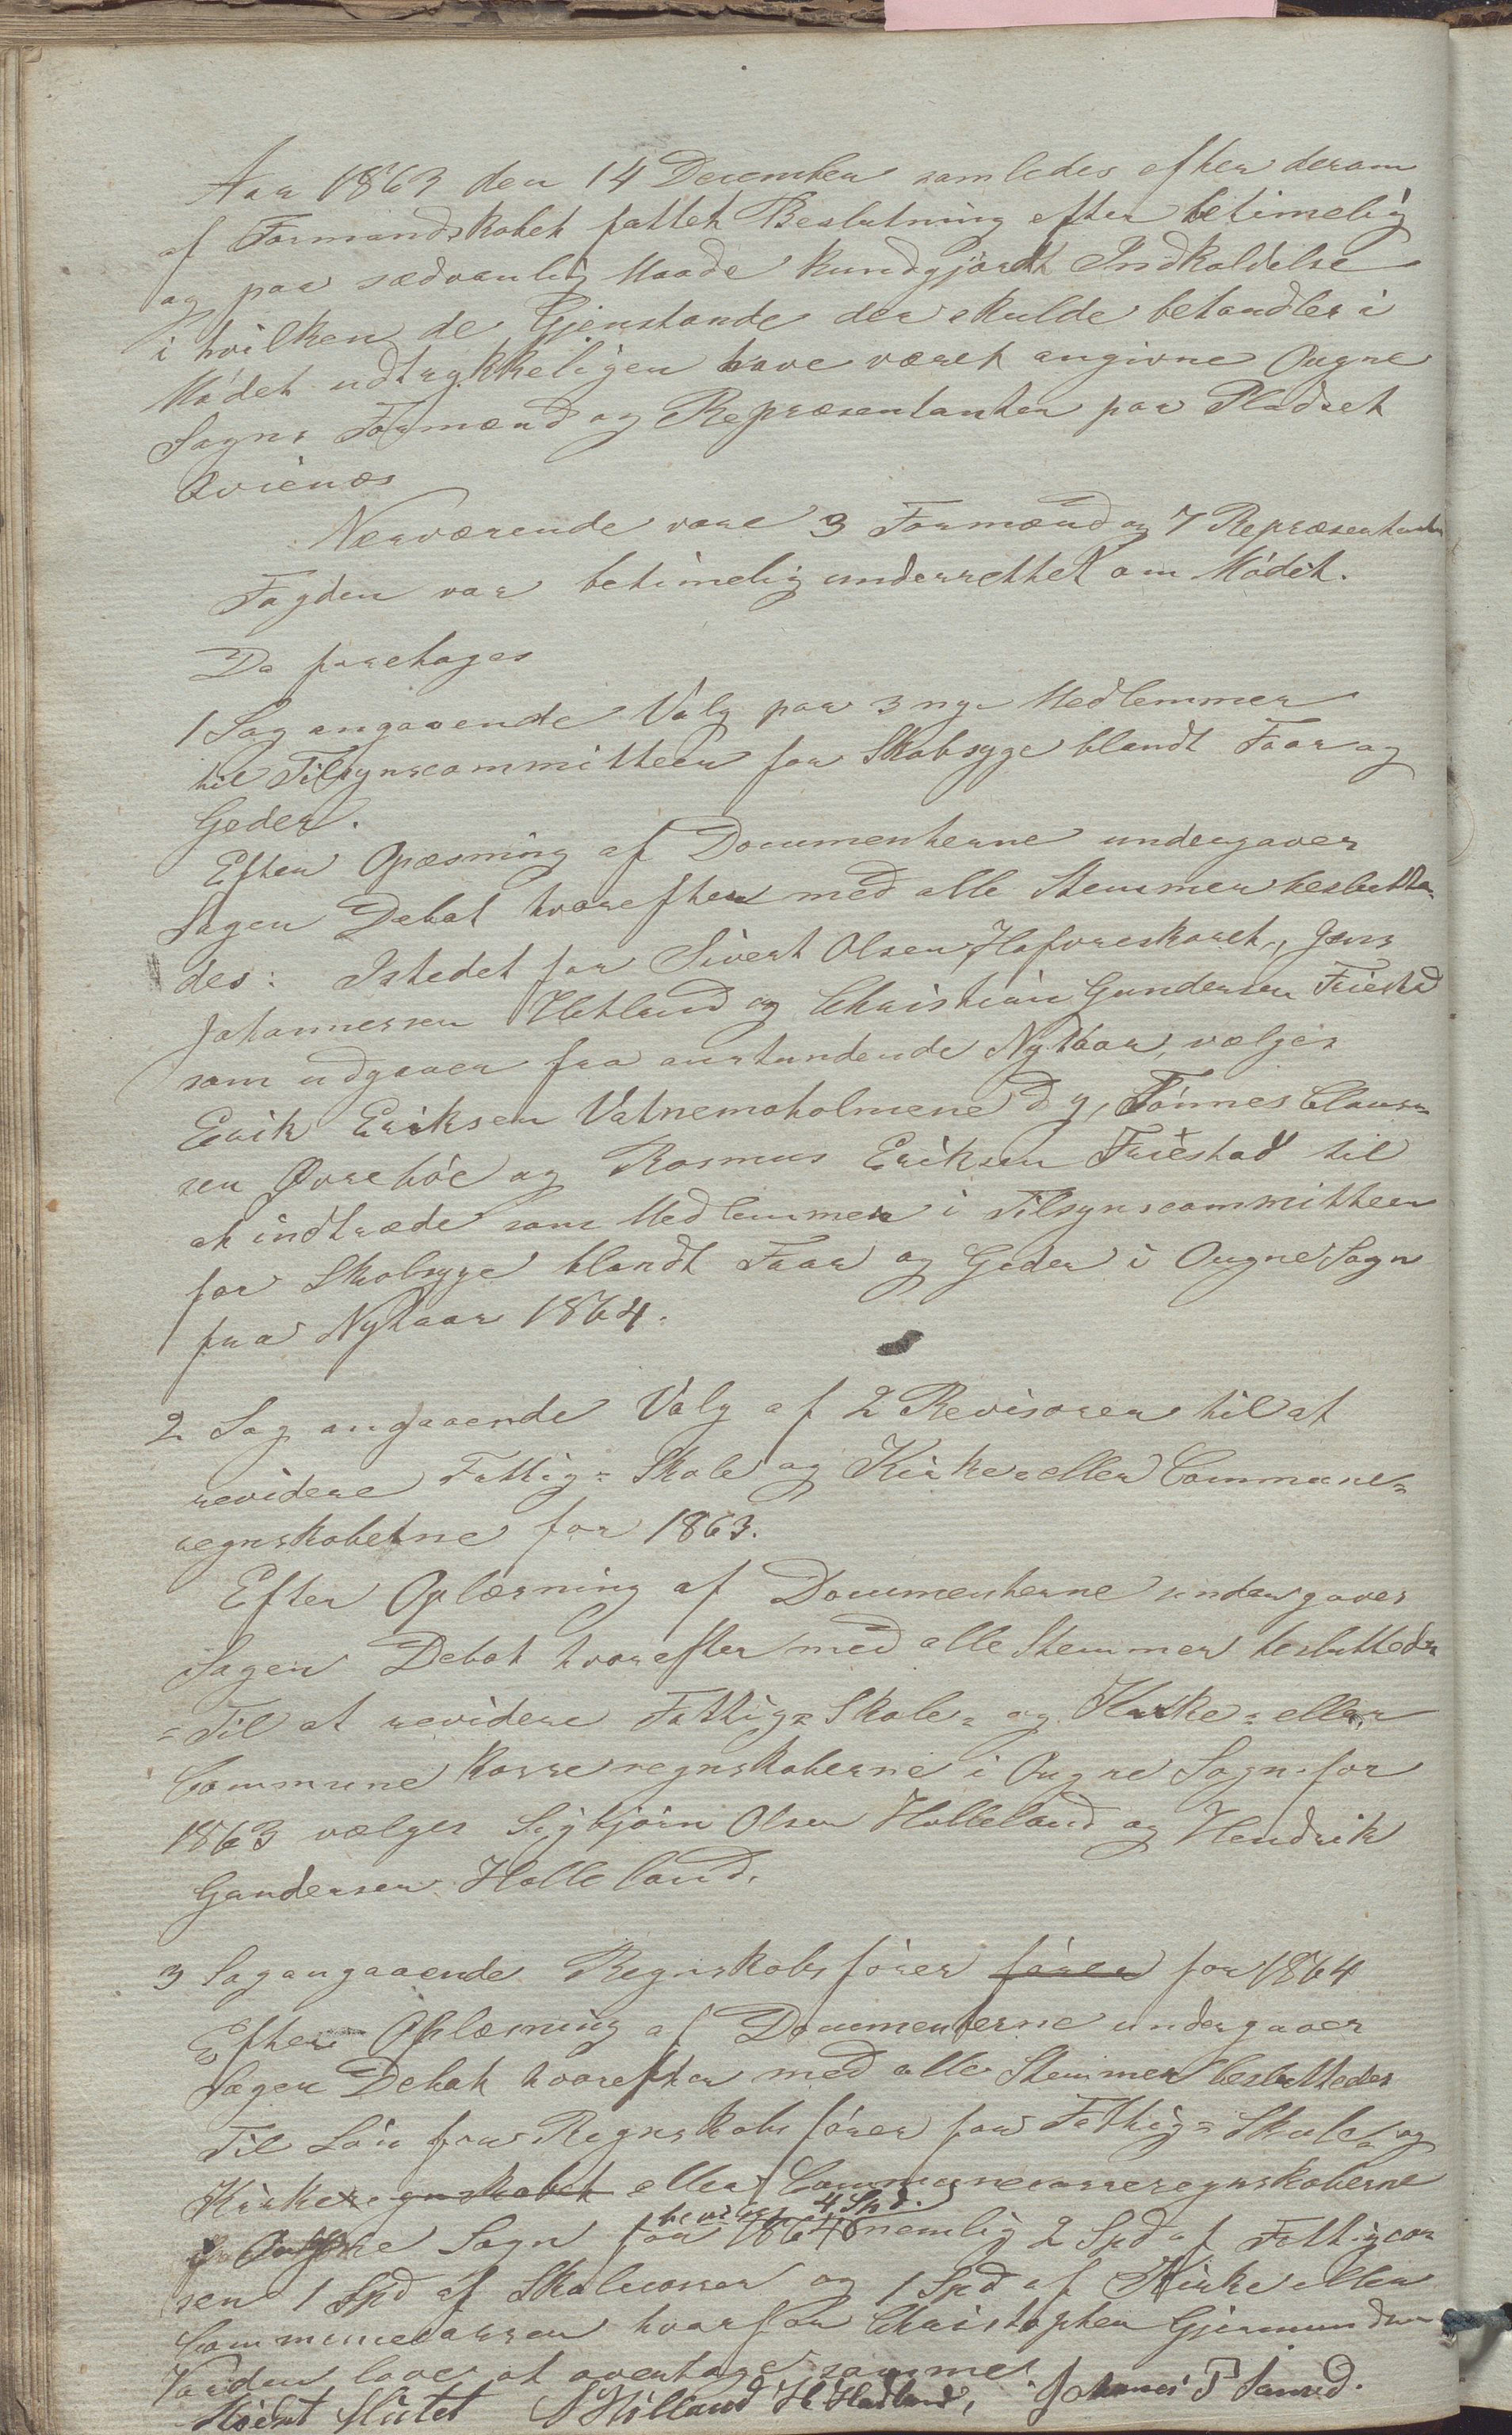 Aar 1863 den 14 December samledes efter derom
af Formandskabet fattet Beslutning efter betimelig
og paa sædvanlig Maade kundgjordt Indkaldelse
i hvilken de Gjenstande der skulde behandles i
Mødet udtrykkeligen have været angivne Ougne
Sogns Formænd og Repræsentanter paa Pladset
Qvienæs
Nærværende vare 3 Formænd og 7 Repræsentanter
Fogden var betimelig underrettet om Mødet.
Da foretoges
1 Sag angaaende Valg paa 3 nye Medlemmer
til Tilsynscommitteen for Skabsyge blandt Faar og
Geder.
Efter Opæsning af Documenterne undergaver
Sagen Debat hvorefter med alle Stemmer beslutte-
des: Istedet for Sivert Olsen Hafvreskaret, Jens
Johannessen Hetland og Christian Gundersen Friestad
som udgaaer fra anstundende Nytaar, vælges
Erik Eriksen Vatnemoholmene D y, Tønnes Claus=
sen Øvrebøe og Rasmus Eriksen Friestad til
at indtræde som Medlemmer i Tilsynscommitteen
for Skabsyge blandt Faar og Geder i Ougne Sogn
fra Nytaar 1864.
2 Sag angaaende Valg af 2 Revisorer til at
revidere Fattig= Skole og Kirke= eller Commune=
regnskabetne for 1863.
Efter Oplæsning af Documenterne undergaver
Sagen Debat hvorefter med alle Stemmer besluttedes
= Til at revidere Fattig= Skole= og Kirke= eller
Commune kasseregnskaberne i Ougne Sogn for
1863 vælges Sigbjørn Olsen Holleland og Hendrik
Gundersen Holleland.
3 Sag angaaende Regnskabsfører fører for 1864
Efter Oplæsning af Documenterne undergaver
Sagen Debat hvorefter med alle Stemmer besluttedes
Til Løn for Regnskabsfører for Fattig= Skole= og
Kirkeregnskabet eller Communecasseregnskaberne
i Ougne Sogn for 1864 bevilges 4 Spd. nemlig 2 Spd af Fattigcas
sen 1 Spd af Skolecassen og 1 Spd af Kirke eller
Communecassen hvorfor Christopher Gjermundsen
Varden lover at overtage samme
Mødet Slutet Hølland H Hadland, Johanes T Sanred.